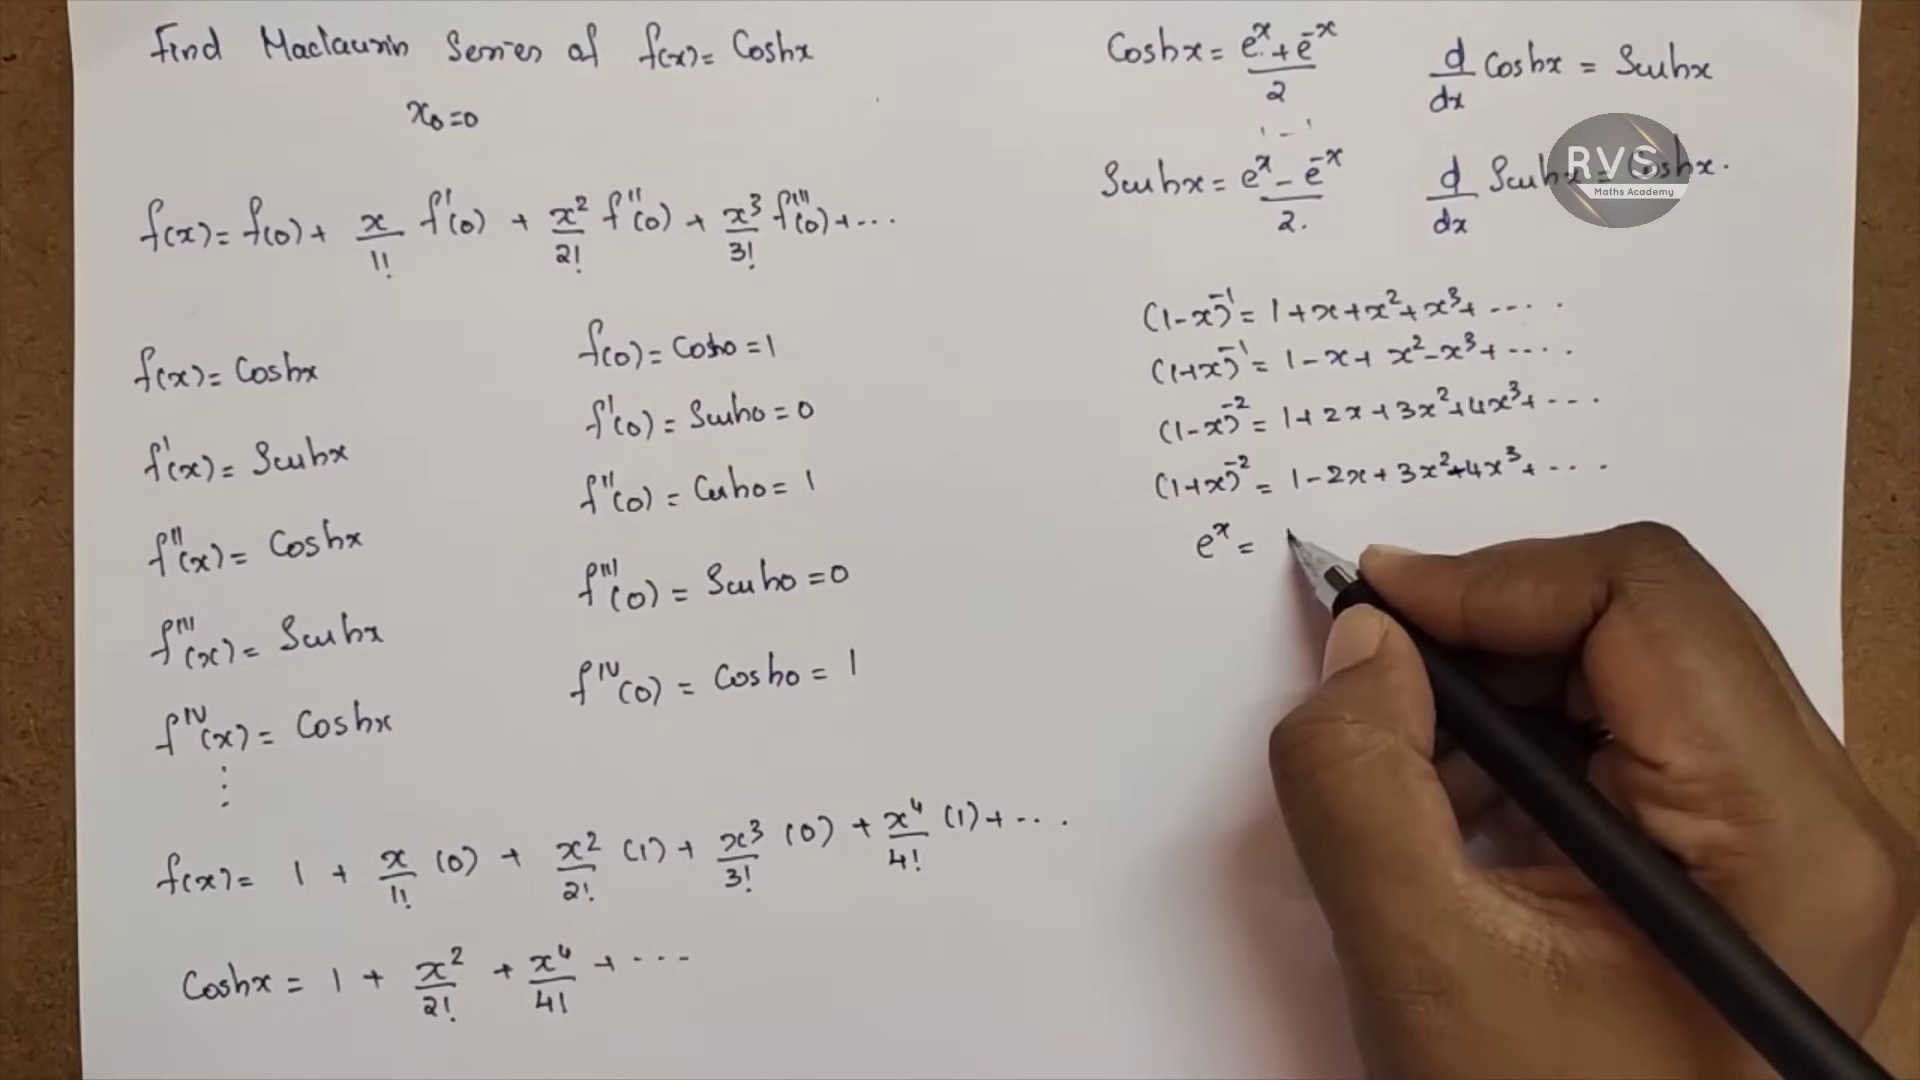 Find Maclaurin Series of f(x) = Coshx
x₀=0
f(x) = f(0) + x/1! f'(0) + x²/2! f''(0) + x³/3! f'''(0) + ...
f(x) = Coshx
f(0) = Cosh0 = 1
f'(x) = Sinhx
f'(0) = Sinh0 = 0
f''(x) = Coshx
f''(0) = Cosh0 = 1
f'''(x) = Sinhx
f'''(0) = Sinh0 = 0
f^IV(x) = Coshx
f^IV(0) = Cosh0 = 1
⋮
f(x) = 1 + x/1! (0) + x²/2! (1) + x³/3! (0) + x⁴/4! (1) + ...
Coshx = 1 + x²/2! + x⁴/4! + ...
Coshx = (eˣ + e⁻ˣ)/2
d/dx Coshx = Sinhx
1 - 1
Sinhx = (eˣ - e⁻ˣ)/2.
d/dx Sinhx = Coshx.
RVS
Maths Academy
(1-x)⁻¹ = 1+x+x²+x³+ .....
(1+x)⁻¹ = 1-x+x²-x³+ .....
(1-x)⁻² = 1+2x+3x²+4x³+ ....
(1+x)⁻² = 1-2x+3x²-4x³+ ....
eˣ =